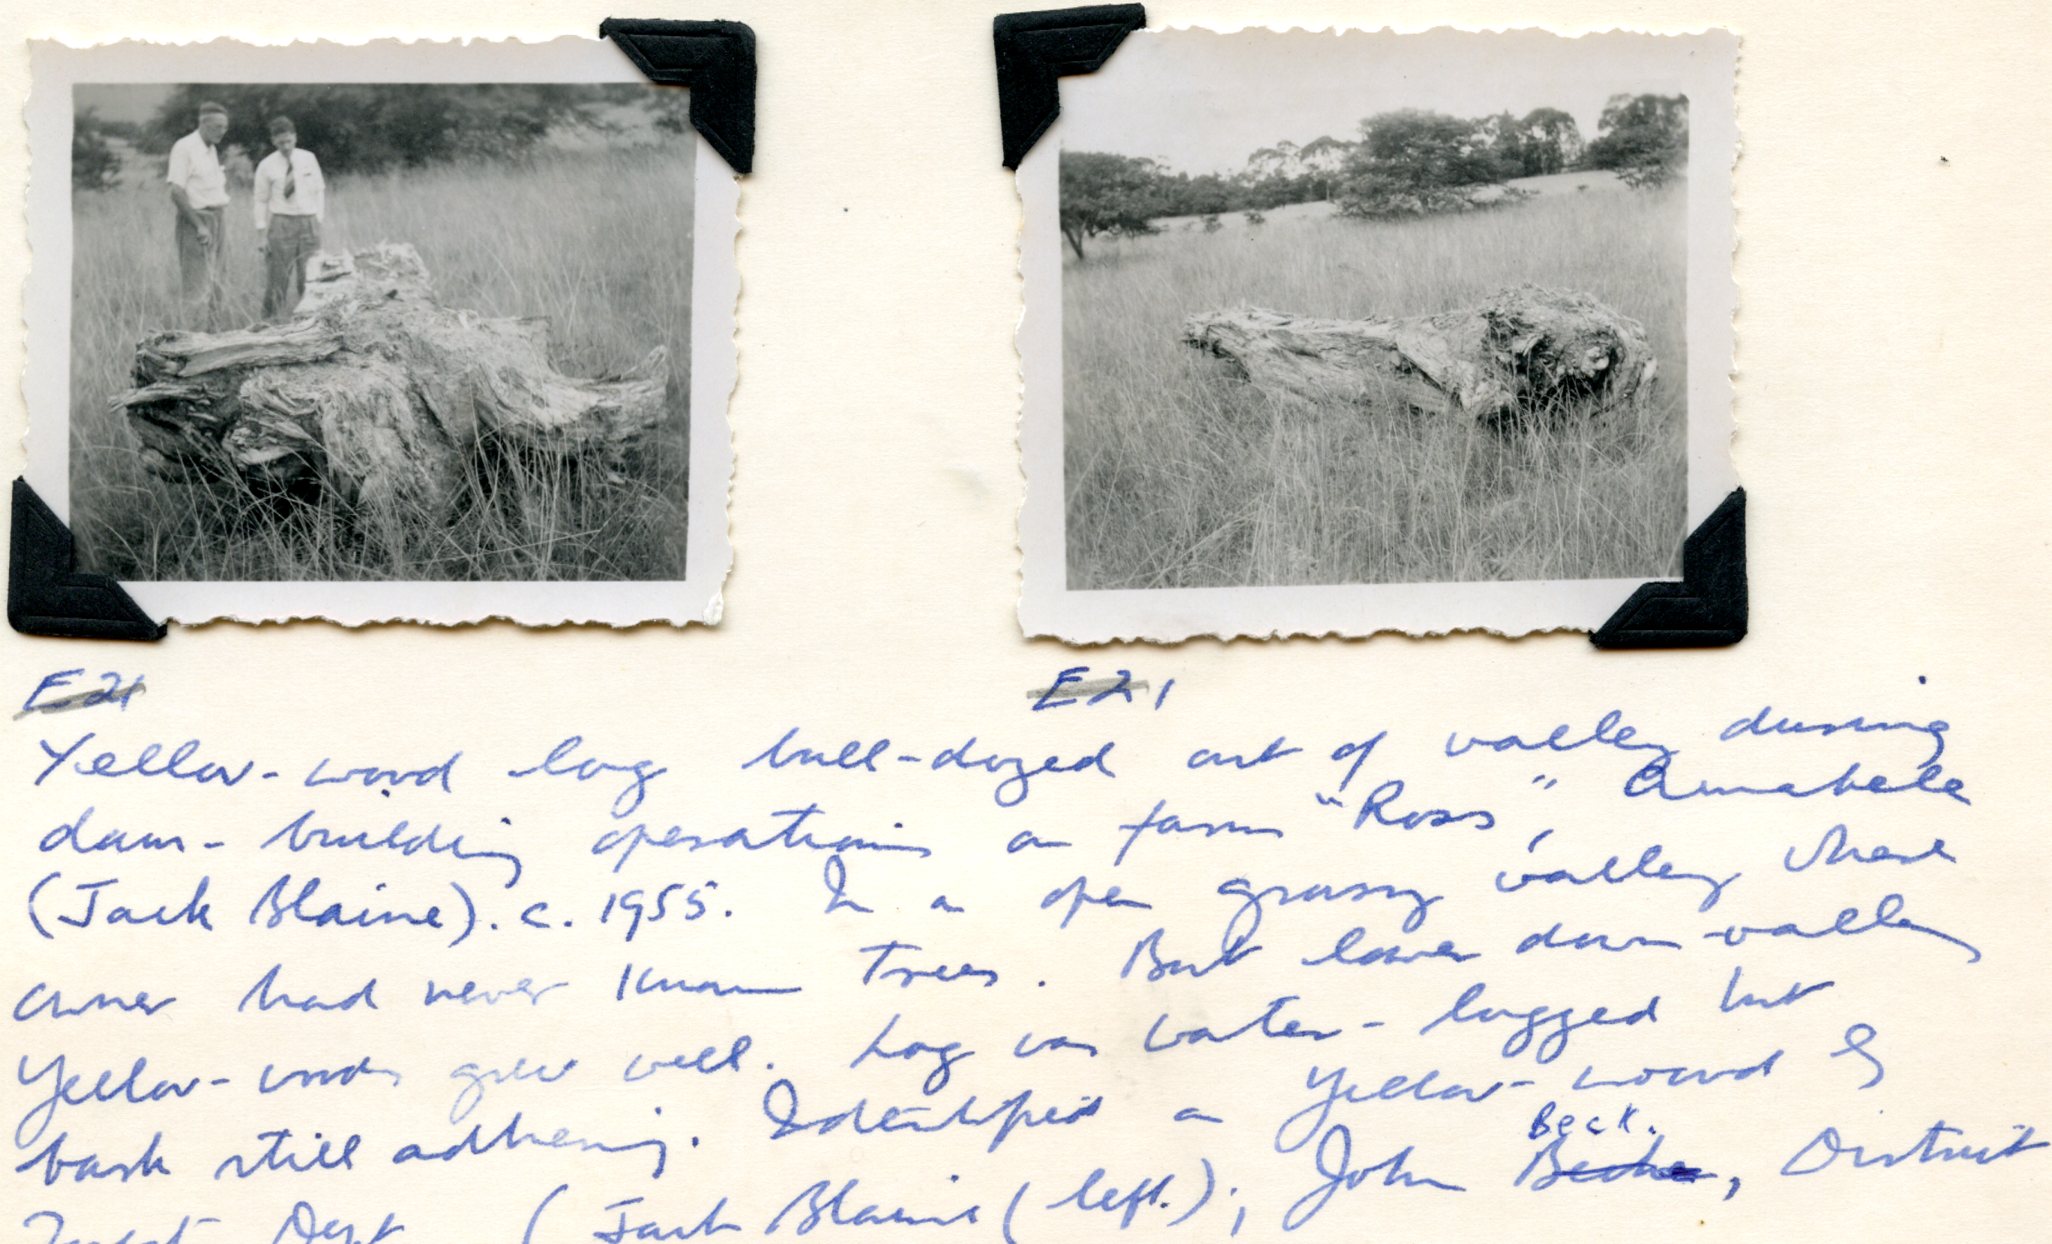 E21
E21
Yellow-wood log bull-dozed out of valley during
dam-building operations on farm "Ross", Amabele
(Jack Blaine). c. 1955. In an open grassy valley where
owner had never known trees. But lower down valley
Yellow-woods grew well. Log was water-logged but
bark still adhering. Identified as Yellow-wood by
Beck.
John Beche, District
Forest Dept (Jack Blaine (left);